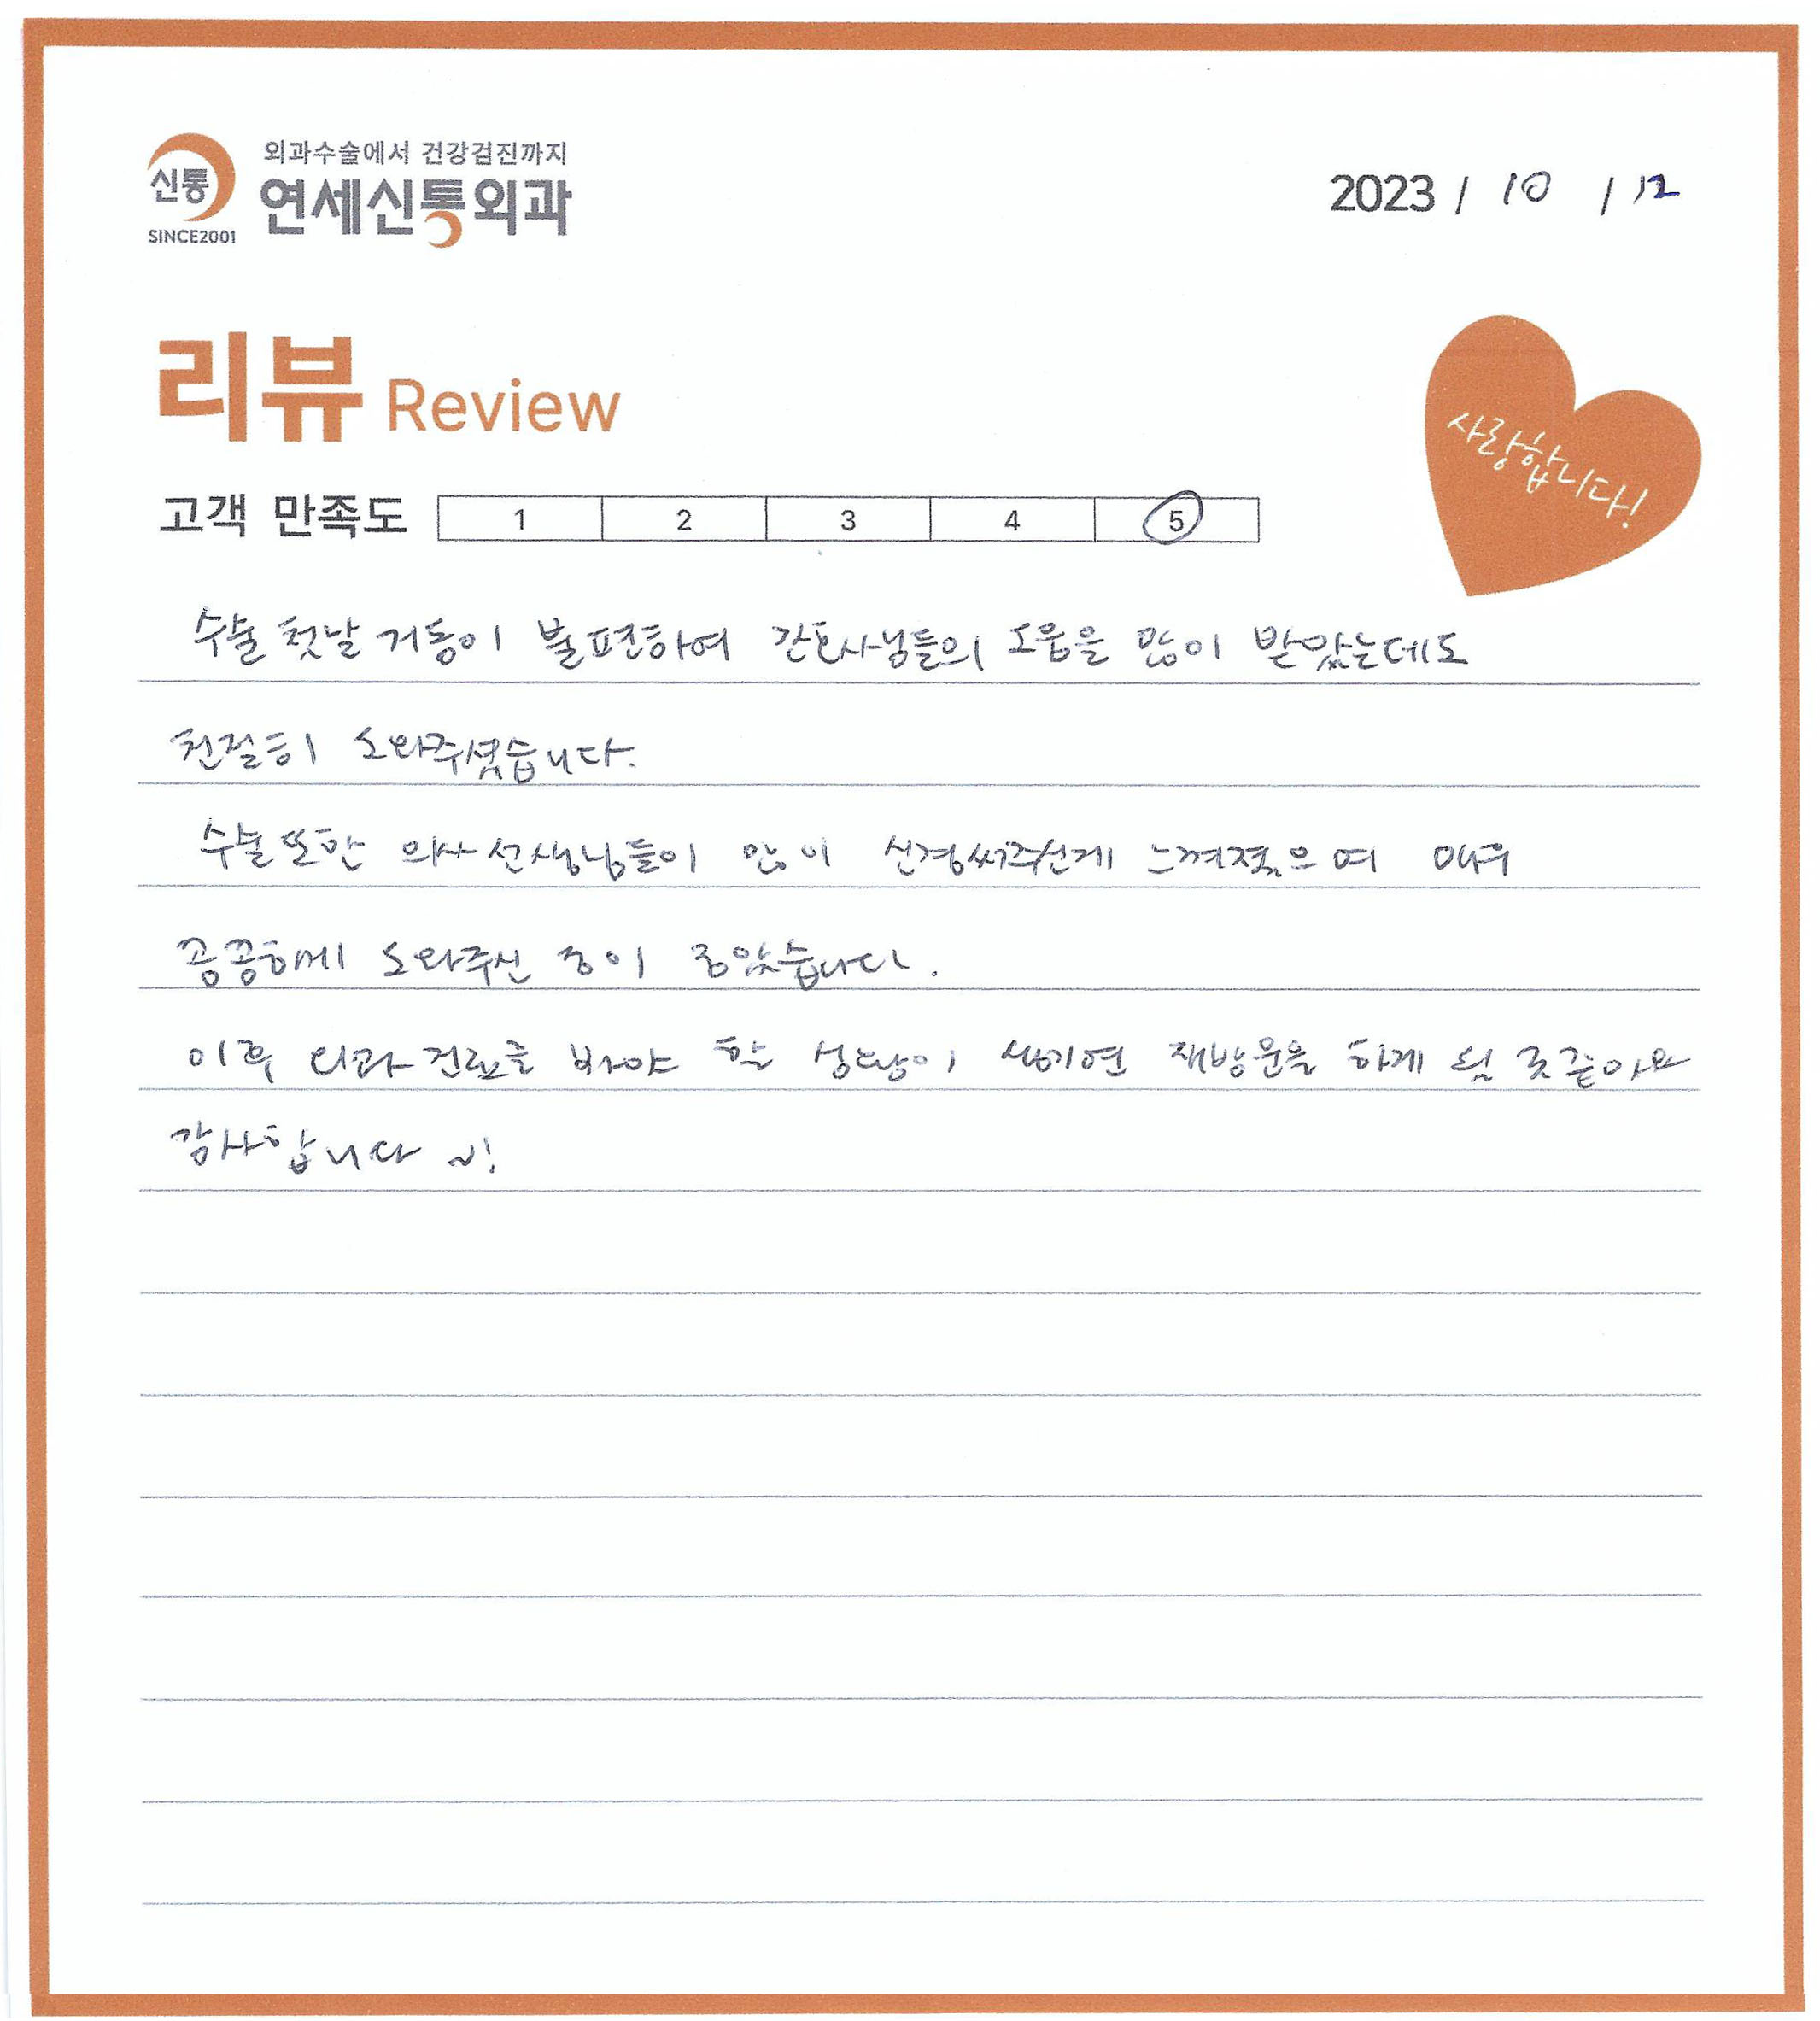 신통
SINCE2001
외과수술에서 건강검진까지
연세신통외과
2023 / 10 / 12
리뷰 Review
사랑합니다!
고객 만족도 1 2 3 4 5
수술 첫날 거동이 불편하여 간호사님들의 도움을 많이 받았는데도
친절히 도와주셨습니다.
수술또한 의사선생님들이 많이 신경써주신게 느껴졌으며 매우
꼼꼼하게 도와주신 점이 좋았습니다.
이후 외과진료를 받아야 할 상황이 생기면 재방문을 하게 될 것 같아요
감사합니다 ~!